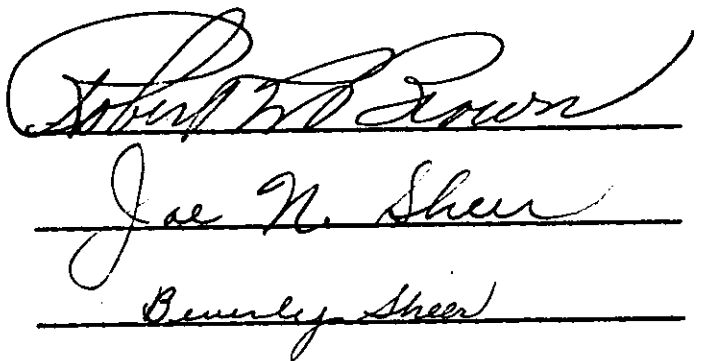 Robert W Brown
Joe N. Sheer
Beverly Sheer